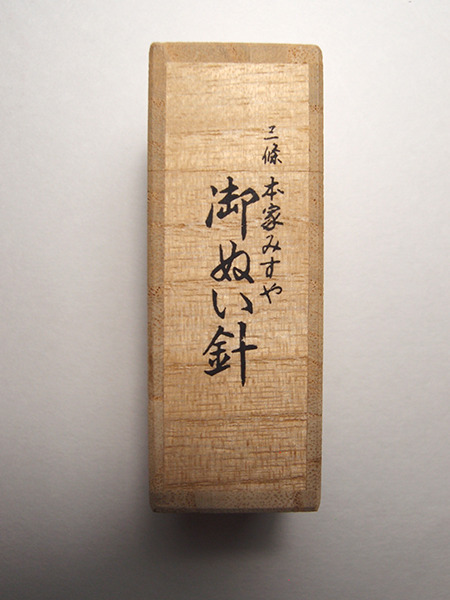 三條 本家みすや
御ぬい針